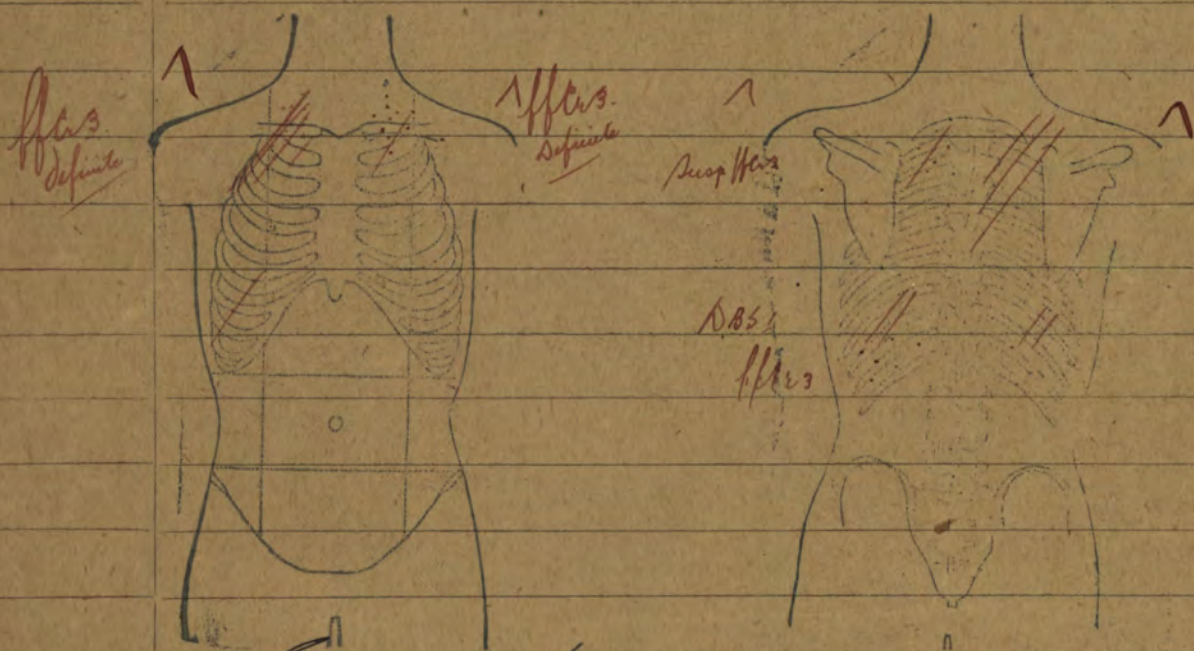 ffCr3.
definite
ffCr3.
Definite
Susp ffCr3
DBS
ffCr3